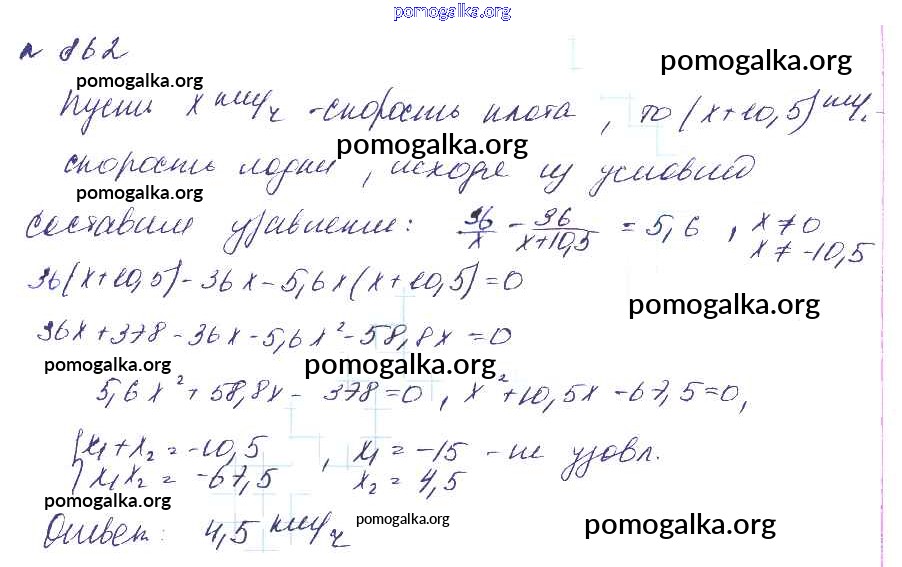 pomogalka.org
№ 862
pomogalka.org
pomogalka.org
Пусть x км/ч - скорость плота, то (x+10,5) км/ч -
pomogalka.org
скорость лодки, исходя из условий
pomogalka.org
составим уравнение: 36/x - 36/(x+10,5) = 5,6, x ≠ 0
x ≠ -10,5
36(x+10,5) - 36x - 5,6x(x+10,5) = 0
pomogalka.org
36x + 378 - 36x - 5,6x² - 58,8x = 0
pomogalka.org
pomogalka.org
5,6x² + 58,8x - 378 = 0, x² + 10,5x - 67,5 = 0,
{ x₁ + x₂ = -10,5 , x₁ = -15 - не удовл.
x₁x₂ = -67,5 x₂ = 4,5
pomogalka.org
Ответ: 4,5 км/ч
pomogalka.org
pomogalka.org